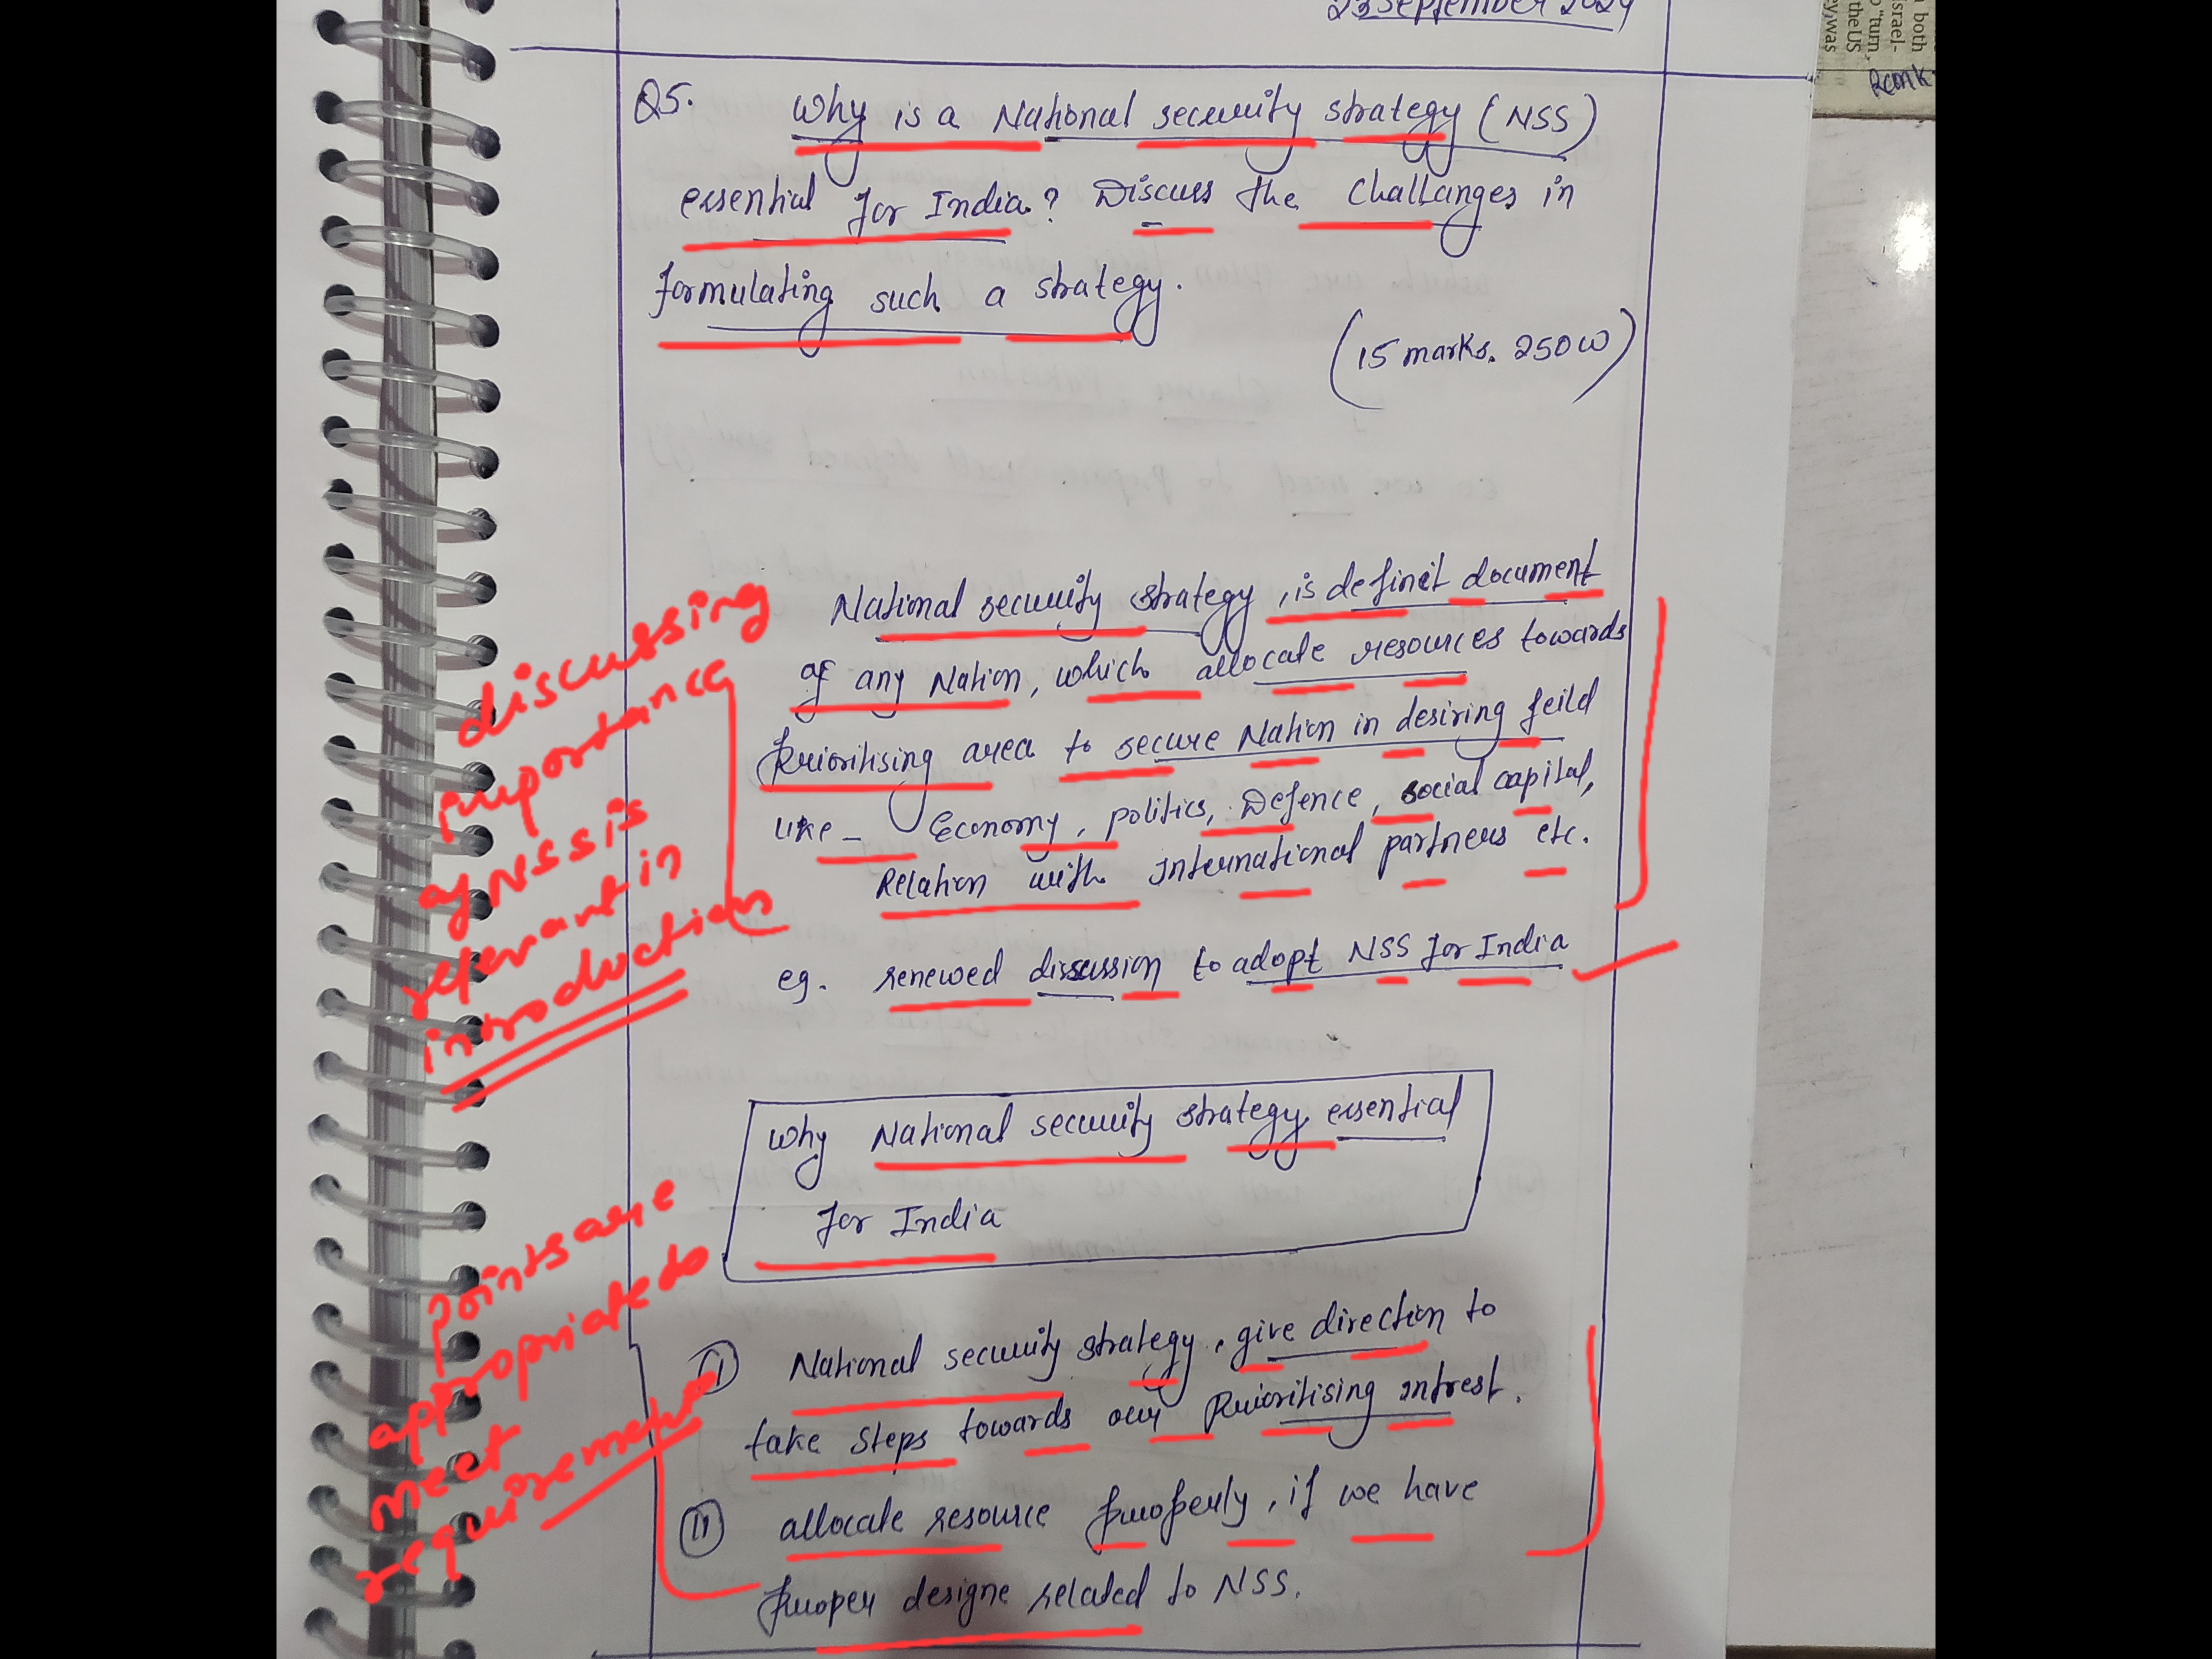 23 September 2024
Q5. Why is a National security strategy (NSS)
essential for India? Discuss the challanges in
formulating such a strategy.
(15 marks. 250W)
National security strategy, is definit document
of any Nation, which allocate resources towards
prioritising area to secure Nation in desiring feild
like - Economy, politics, Defence, social capital,
Relation with International partners etc.
eg. renewed discussion to adopt NSS for India
discussing
importance
of NSS is
relevant in
introduction
Why National security strategy essential
for India
(I) National security strategy, give direction to
take steps towards our Prioritising intrest.
(II) allocate resource properly, if we have
proper designe related to NSS.
points are
appropriate to
meet
requirement
both
israel-
"turn,
the US
ey, was